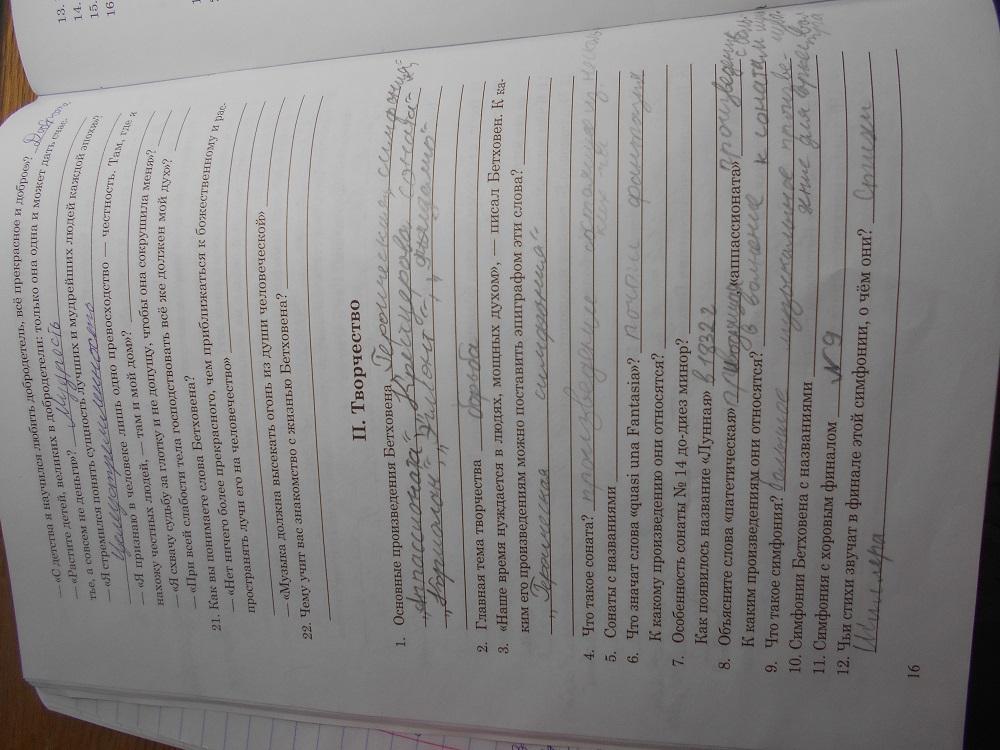 — «С детства я научился любить добродетель, всё прекрасное и доброе»?
— «Растите детей, великих в добродетели: только она одна и может дать счас-
тье, а совсем не деньги»? Мудрость
— «Я стремился понять сущность лучших и мудрейших людей каждой эпохи»?
Целеустремленность
— «Я признаю в человеке лишь одно превосходство — честность. Там, где я
нахожу честных людей, — там и мой дом»?
— «Я схвачу судьбу за глотку и не допущу, чтобы она сокрушила меня»?
— «При всей слабости тела господствовать всё же должен мой дух»?
21. Как вы понимаете слова Бетховена?
— «Нет ничего более прекрасного, чем приближаться к божественному и рас-
пространять лучи его на человечество»
— «Музыка должна высекать огонь из души человеческой»
22. Чему учит вас знакомство с жизнью Бетховена?
II. Творчество
1. Основные произведения Бетховена Героическая симфония,
„Аппассионата" Крейцерова соната
„Кориолан", „Эгмонт", „Фиделио"
2. Главная тема творчества борьба
3. «Наше время нуждается в людях, мощных духом», — писал Бетховен. К ка-
ким его произведениям можно поставить эпиграфом эти слова?
„Героическая симфония"
4. Что такое соната? произведение
5. Сонаты с названиями
6. Что значат слова «quasi una Fantasia»? почти фантазия
К какому произведению они относятся?
7. Особенность сонаты № 14 до-диез минор?
Как появилось название «Лунная» в 1832 г
8. Объясните слова «патетическая» «аппассионата» произведение
К каким произведениям они относятся? к сонатам
9. Что такое симфония? большое музыкальное произве-
дение для
10. Симфонии Бетховена с названиями
11. Симфония с хоровым финалом №9
12. Чьи стихи звучат в финале этой симфонии, о чём они? Стихи
Шиллера
16
13.
14.
15.
16